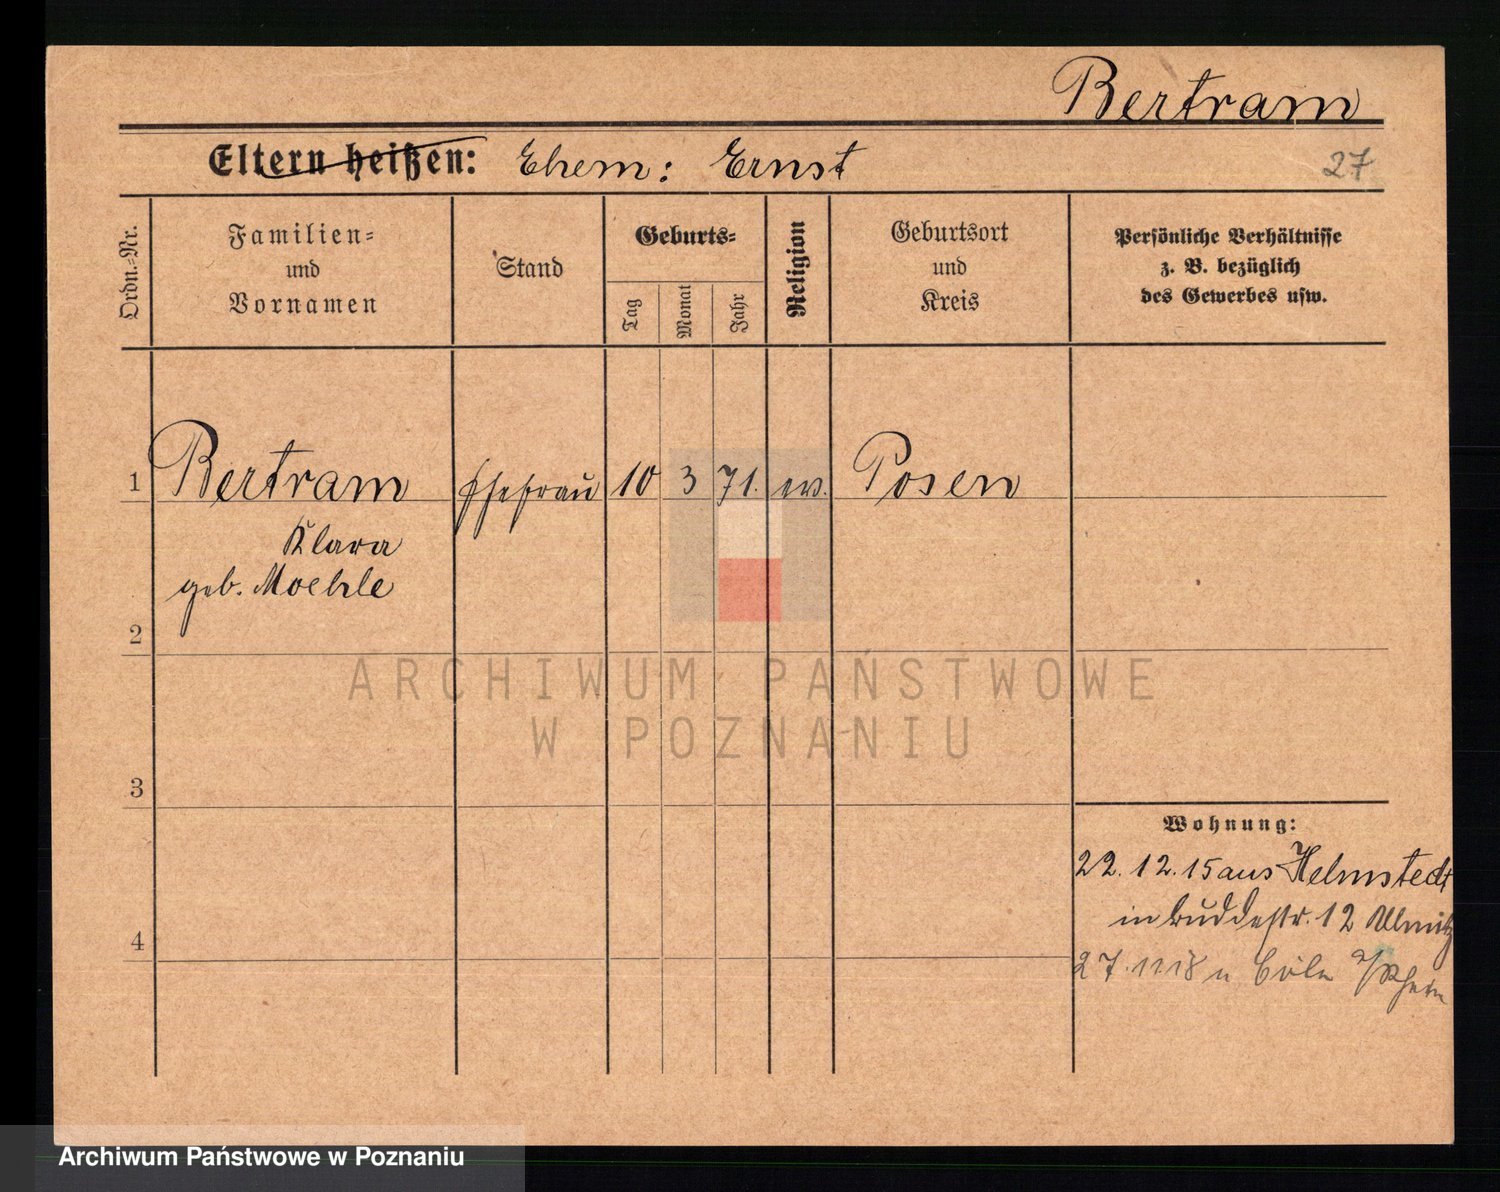 Bertram
Eltern heißen: Ehem: Ernst
27
Ordn.-Nr.
Familien-
und
Vornamen
Stand
Geburts-
Tag
Monat
Jahr
Religion
Geburtsort
und
Kreis
Persönliche Verhältnisse
z. B. bezüglich
des Gewerbes usw.
1 Bertram Ehefrau 10 3 71. ev. Posen
Klara
geb. Moehle
2
3
4
Wohnung:
22.12.15 aus Helmstedt
in Buddestr. 12
27. 11 18 n Cöln a/Rhein
ARCHIWUM PAŃSTWOWE
W POZNANIU
Archiwum Państwowe w Poznaniu